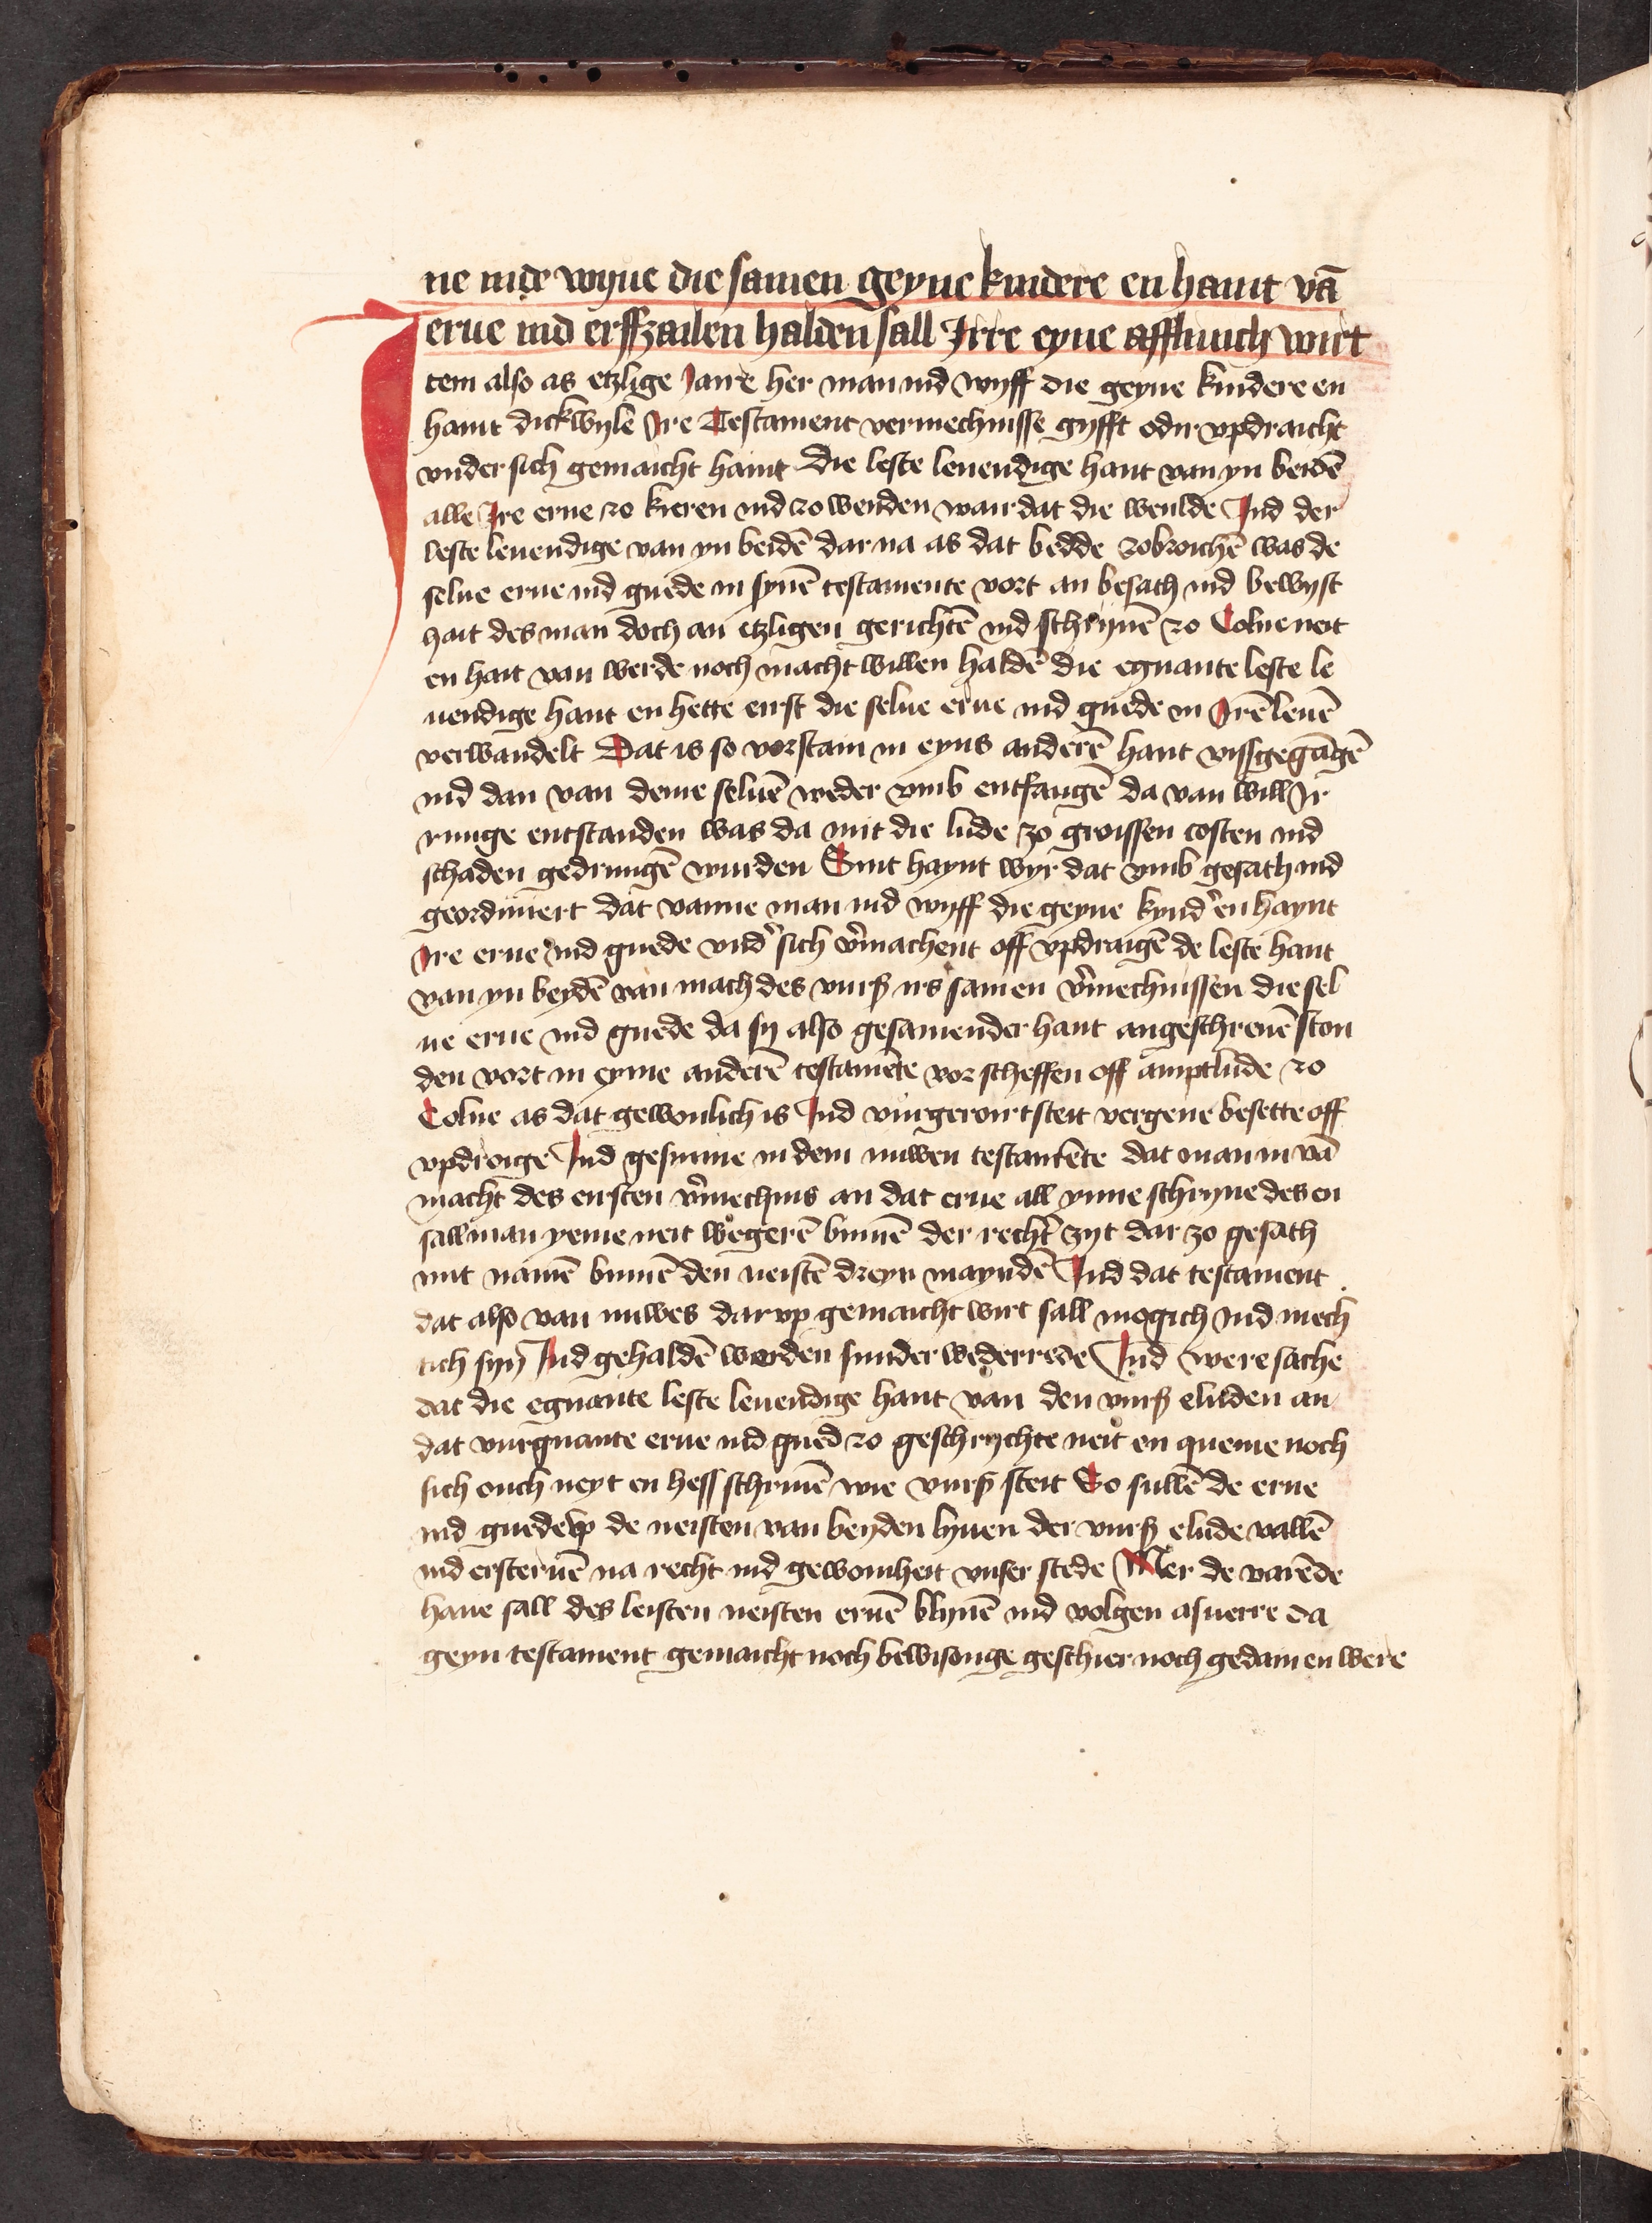 ne inde wyue die samen geyne kindere en haint vā
erue ind erffzailen halden sall Irre eyne afflinich wirt
Item also as etzlige Jaire her man ind wyff die geyne kindere en
haint dickwyle Ire Testament vermechnisse gyfft odir vpdraicht
vnder sich gemaicht haint die leste leuendige hant van yn beidē
alle Ire erue zo kieren ind zo wenden wair dat die weulde Ind der
leste leuendige van yn beidē dar na as dat bedde zobroichē was de
selue erue ind guede in synē testamente vort an besach ind bewyst
hait des man doch an etzligen gerichtē ind schrynē zo Colne neit
en hait van werde noch macht willen haldē die egnante leste le
uendige hant en hette eirst die selue erue ind guede in Irē leuē
verwandelt Dat is so vorstain in eyns anderē hant vissgegāgē
ind dan van deme seluē weder vmb entfangē da van will Ir
runge entstanden was da mit die lude zo groissen costen ind
schaden gedrungē wurden Sint haynt wyr dat vmb gesath ind
geordiniert dat wanne man ind wyff die geyne kynd'en haynt
Ire erue ind guede vnd' sich v'machent off vpdraigē de leste hant
van yn beydē van mach des vurß irs samen v'mechnissen die sel
ue erue ind guede da sy also gesamender hant angeschreuē ston
den vort in eyme anderē testamēte vor scheffen off amptlude zo
Colne as dat gewonlich is Ind vurgerourt steit vergeue besette off
vpdroige Ind gesinne in dem nuwen testamēte dat man in vā
macht des eirsten v'mechnis an dat erue all ynne schryue des en
sall man yeme neit wegerē binnē der recht' zyt dar zo gesath
mit namē binnē den neistē dreyn mayndē Ind dat testament
dat also van nuwes dar vp gemaicht wirt sall mogich ind mech
tich syn Ind gehaldē werden sunder wederrede Ind were sache
dat die egnante leste leuendige hant van den vurß eluden an
dat vurgnante erue ind gued zo geschrychte neit en queme noch
sich ouch neyt en hess schriuē wie vurß steit So sullē de erue
ind guede vp de neisten van beyden lyuen der vurß elude vallē
ind ersteruē na recht ind gewoinheit vnser stede Mer de varēde
haue sall des leisten neisten eruē blyuē ind volgen asuerre da
geyn testament gemaicht noch bewisonge geschier noch gedain en were